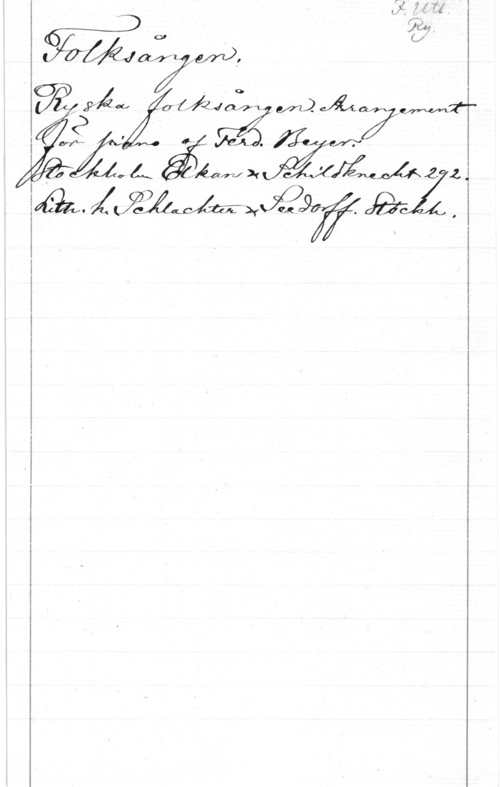 F. Utl.
Ry.
Folksången.
Ryska folksången. Arrangement
för piano af Ferd. Beyer.
Stockholm Elkan & Schildknecht 292.
Lith. h. Schlachter & Seedorff. Stockh.